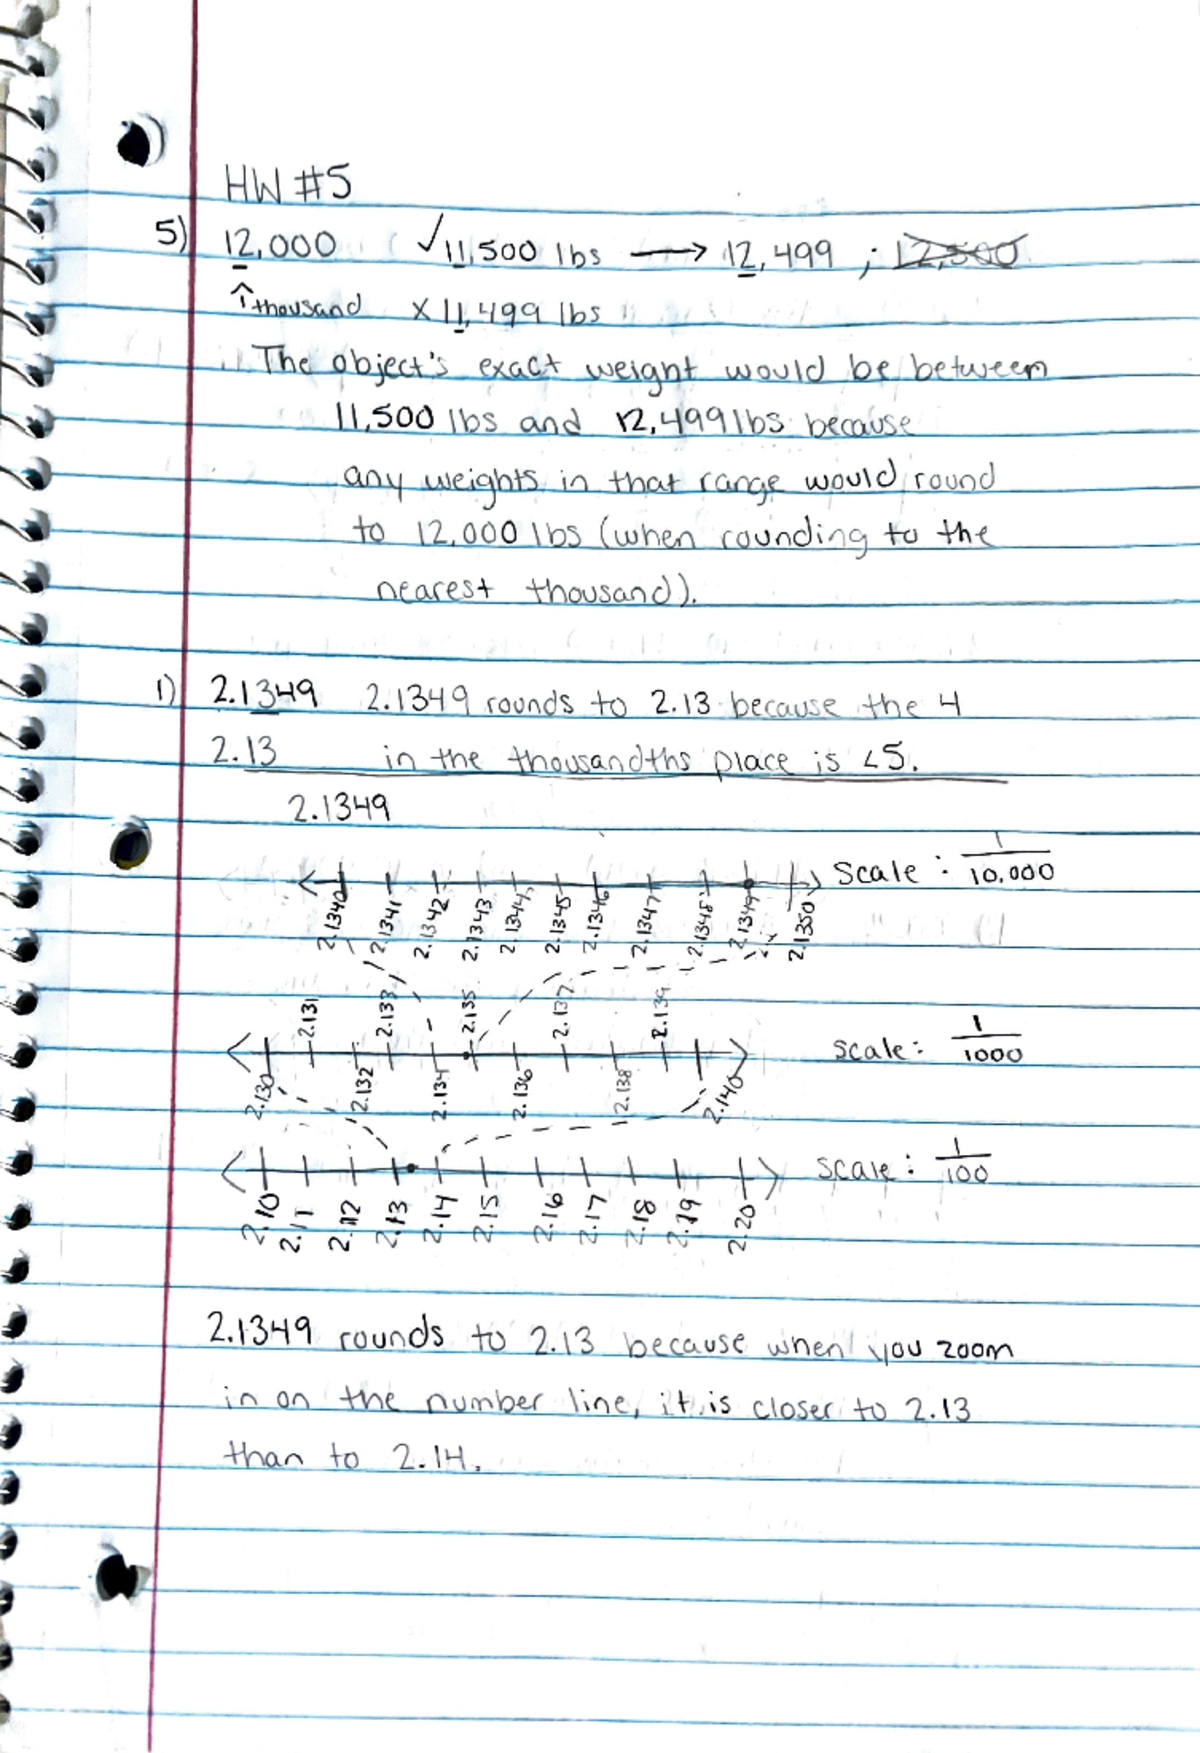 HW #5
5) 12,000 ✓11,500 lbs → 12,499 ; 12,500
↑ thousand × 11,499 lbs
The object's exact weight would be between
11,500 lbs and 12,499 lbs because
any weights in that range would round
to 12,000 lbs (when rounding to the
nearest thousand).
1) 2.1349 2.1349 rounds to 2.13 because the 4
2.13 in the thousandths place is <5.
2.1349
Scale : 1/10,000
2.1340 2.1341 2.1342 2.1343 2.1344 2.1345 2.1346 2.1347 2.1348 2.1349 2.1350
2.131 2.133 2.135 2.137 2.139
scale : 1/1000
2.130 2.132 2.134 2.136 2.138 2.140
scale : 1/100
2.10 2.11 2.12 2.13 2.14 2.15 2.16 2.17 2.18 2.19 2.20
2.1349 rounds to 2.13 because when you zoom
in on the number line, it is closer to 2.13
than to 2.14.